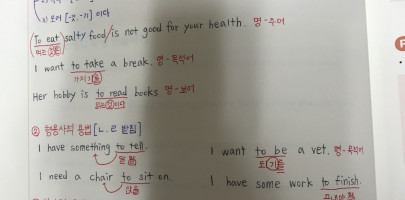 3) 보어 [-것, -기] 이다
To eat salty food is not good for your health. 명-주어
먹는 것은
I want to take a break. 명-목적어
가지기를
Her hobby is to read books 명-보어
읽는 것이다
② 형용사적 용법 [ㄴ, ㄹ 받침]
I have something to tell.
말할
I want to be a vet. 명-목적어
되기를
I need a chair to sit on.
앉을
I have some work to finish.